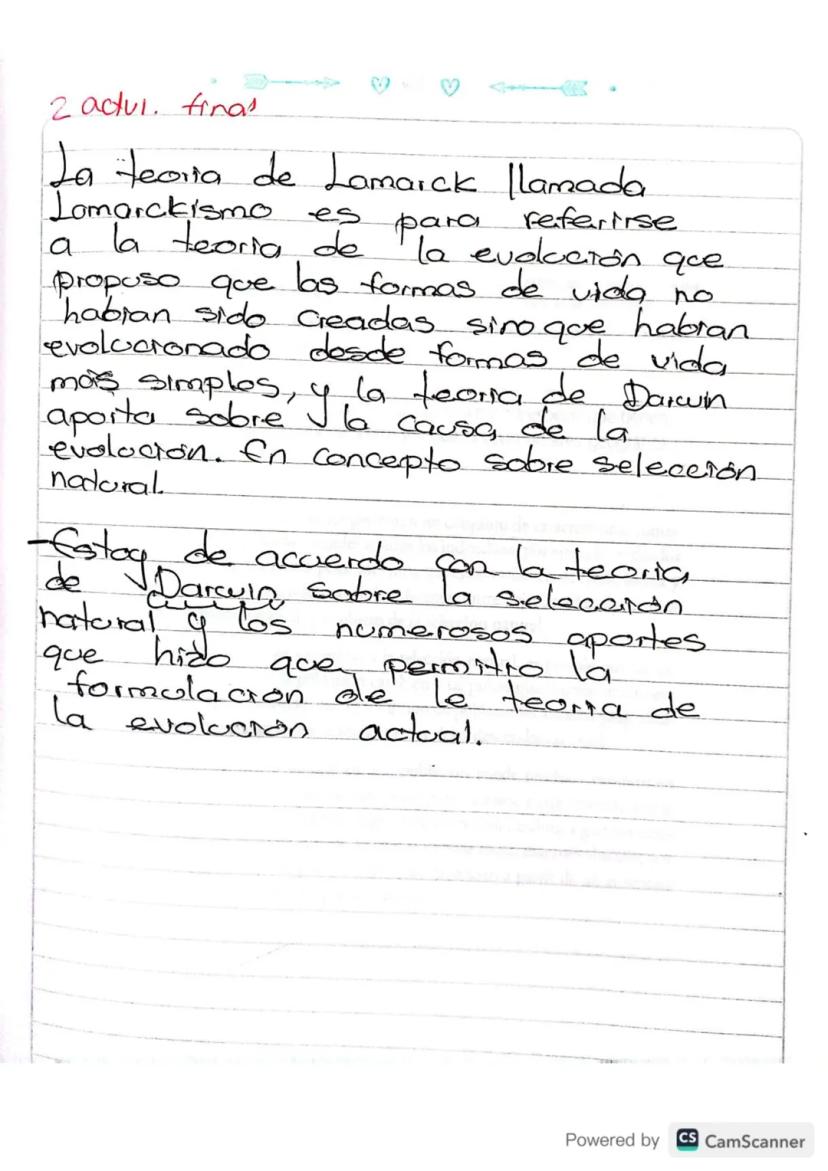 2 actvi. finas
La teoria de Lamarck llamada
Lomarckismo es para referirse
a la teoria de la evolución que
propuso que las formas de vida no
habian sido creadas sino que habian
evolucaronado desde formas de vida
más simples, y la teoria de Darwin
aporta sobre la causa de la
evolución. En concepto sobre selección
natural.
-Estoy de acuerdo con la teoria
de Darwin sobre la selección
natural y los numerosos aportes
que hizo que permitro la
formulación de le teoria de
la evolución actual.
Powered by CS CamScanner